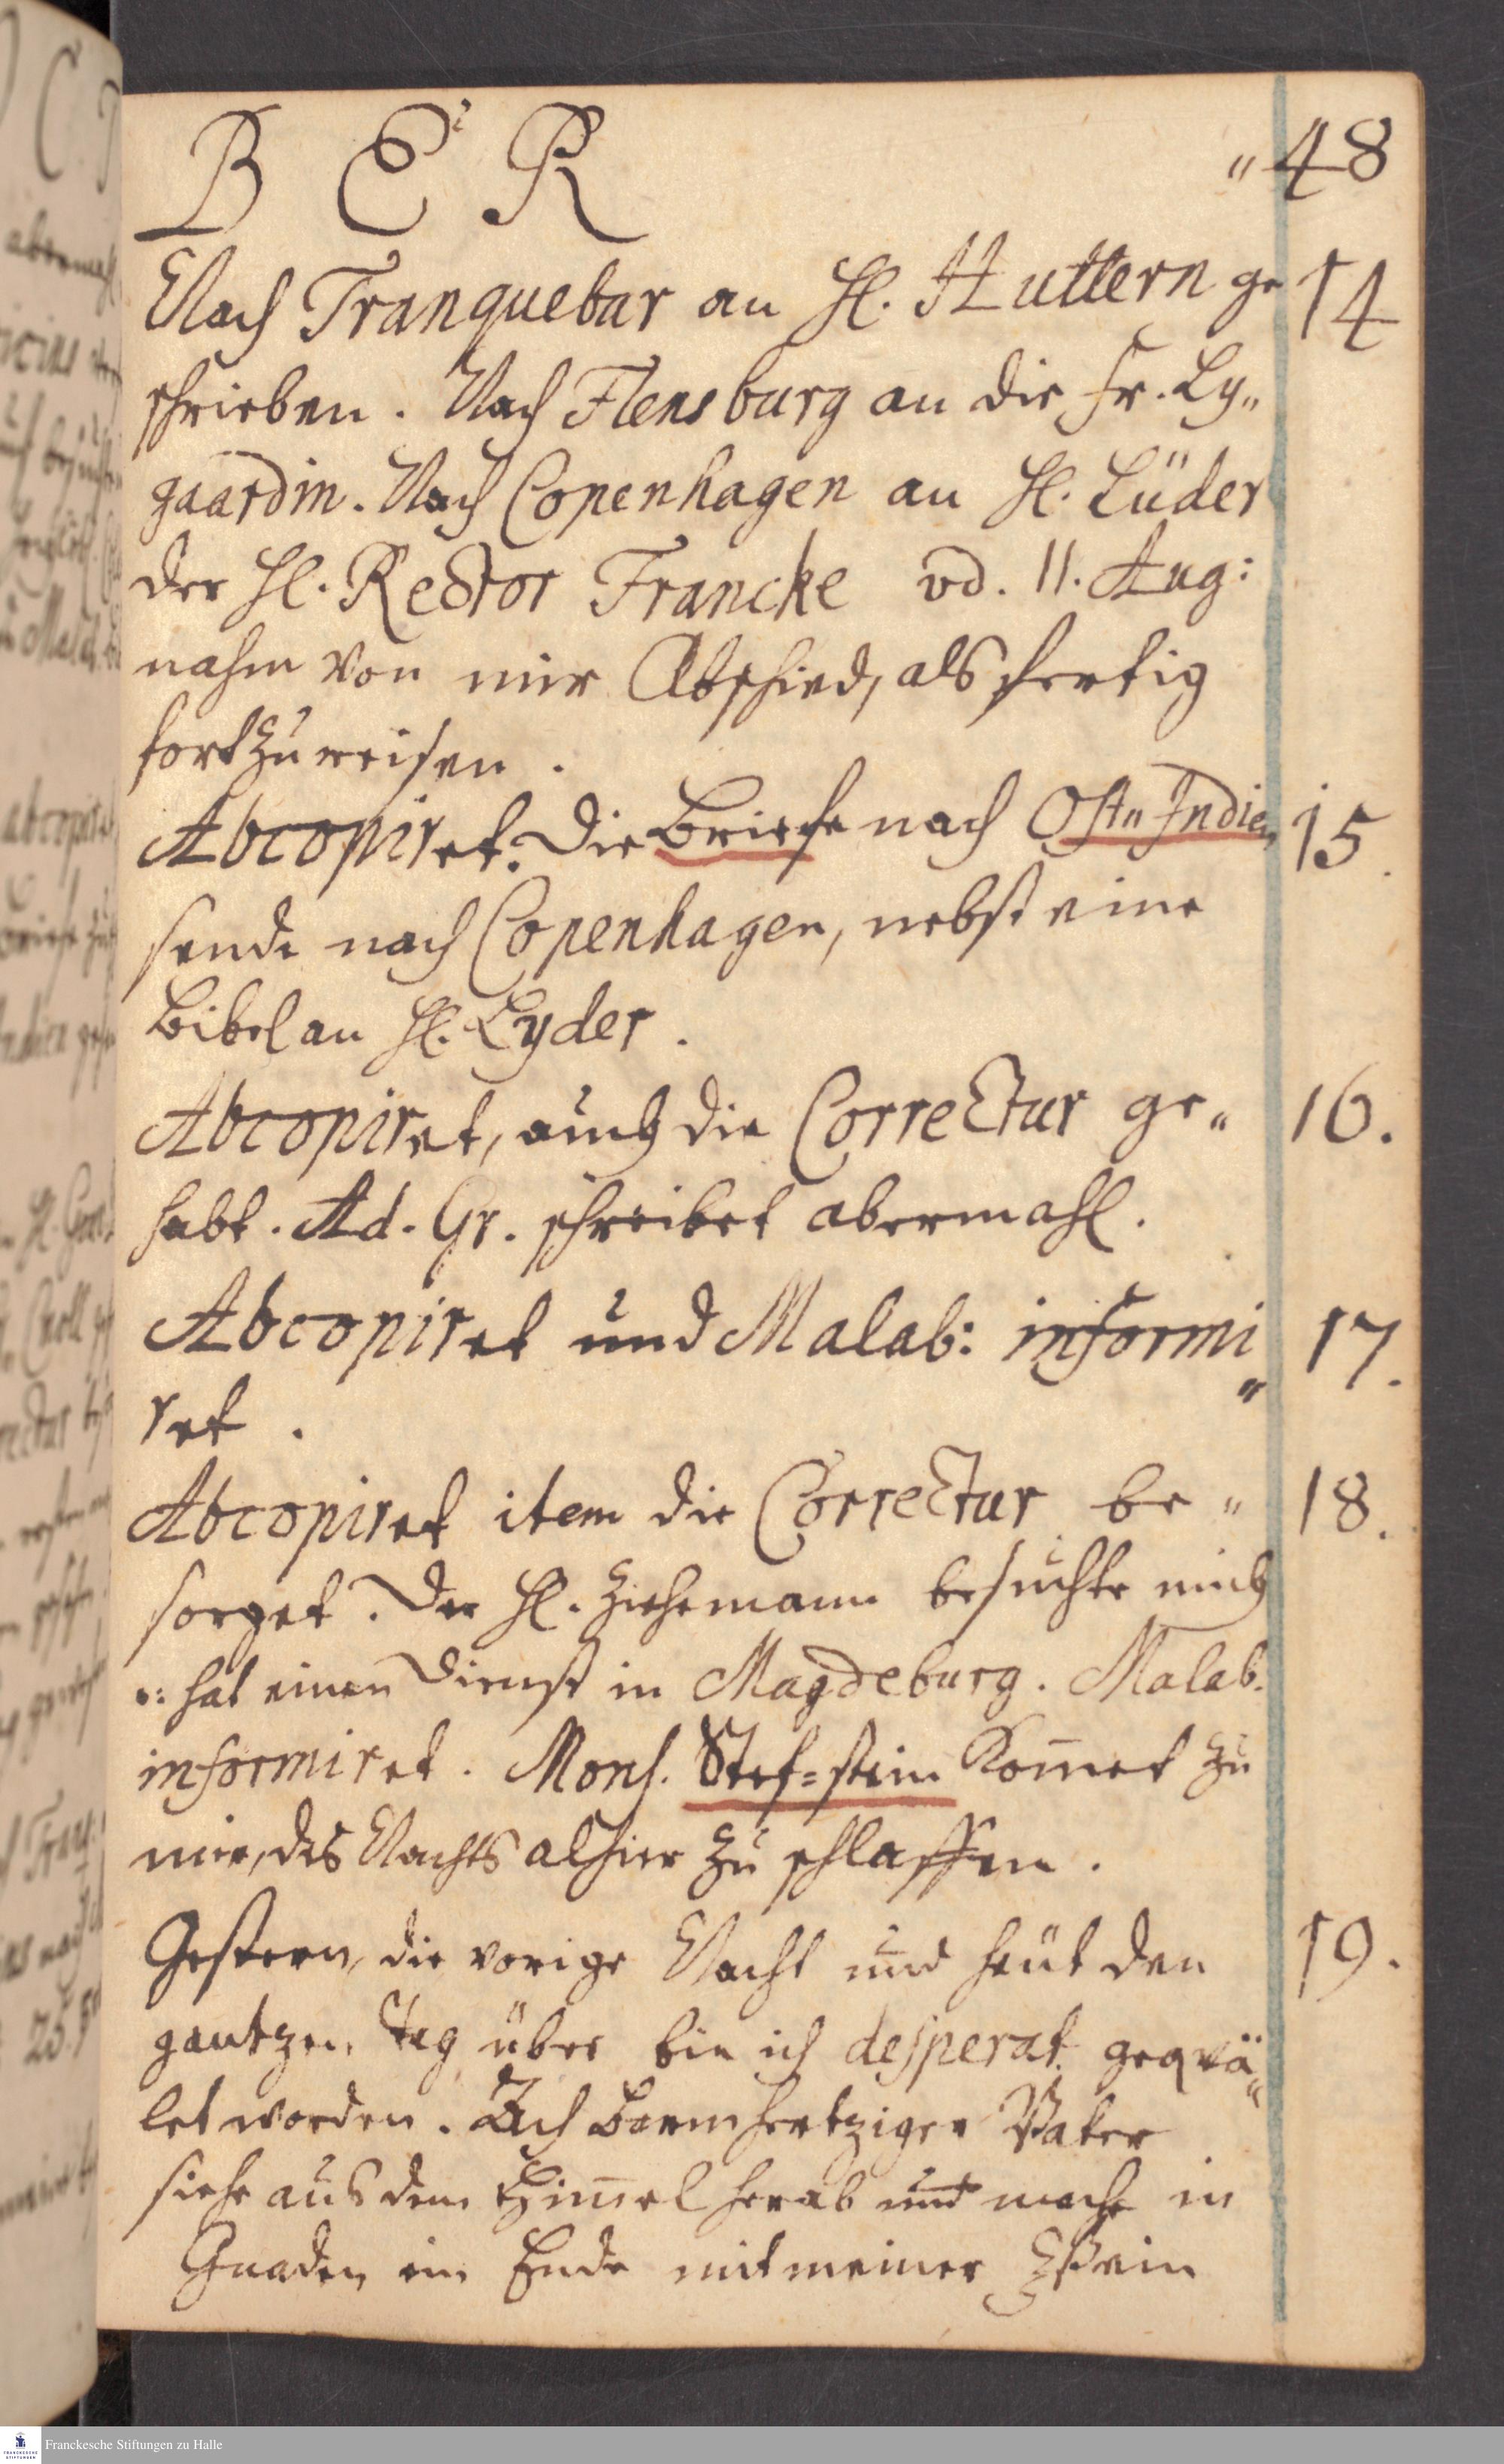 B E R "48
Nach Tranquebar an H. Huttern ge 14
schrieben. Nach Flensburg an die Fr. Ly„
gaardin. Nach Copenhagen an H. Lüder
der H. Rector Francke vd. 11. Aug:
nahm von mir Abschied, als fertig
fortzureisen.
Abcopiret. Die Briefe nach Ost„Indien 15.
sende nach Copenhagen, nebst eine
Bibel an H. Lyder.
Abcopiret, auch die Correctur ge„ 16.
habt. Ad. Gr. schreibet abermahl.
Abcopiret und Malab: informi„ 17.
ret.
Abcopiret item die Correctur be„ 18.
sorget. Der H. Ziehemann besuchte mich
hat einen Dienst in Magdeburg. Malab.
informiret. Mons. Stef=stein kom̅et zu
mir, des Nachts alhier zu schlaffen.
Gestern, die vorige Nacht und heüt den 19.
gantzen Tag über bin ich desperat geqvä„
let worden. Ach Barmhertziger Vater
siehe aus dem Him̅el herab und mache in
Gnaden ein Ende mit meiner
Franckesche Stiftungen zu Halle